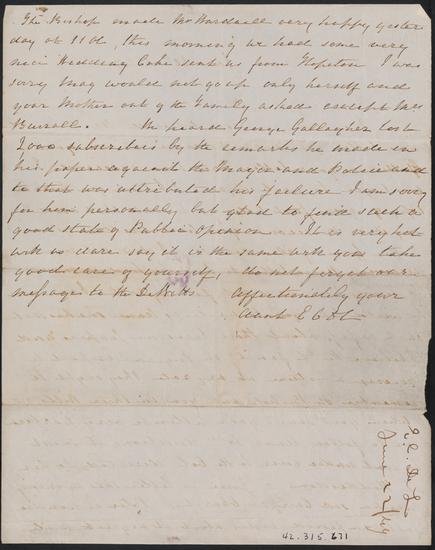 The Bishop made Mr Wardnell very happy yester
day at 11 O'C, this morning we had some very
nice Wedding Cake sent us from Hopeton I was
sorry May would not go up only herself and
your Mother out of the Family asked except Mrs
Burrall. We heard George Gallagher lost
2000 subscribers by the remarks he made in
his paper against the Mayor and Police and
to that was attributed his failure I am sorry
for him personally but glad to find such a
good state of Public Opinion It is very hot
with us dare say it is the same with you take
good care of yourself, do not forget our
messages to the DeWitts affectionately your
Aunt E C DeL
E. C. De L
June 22/49
42.315.631